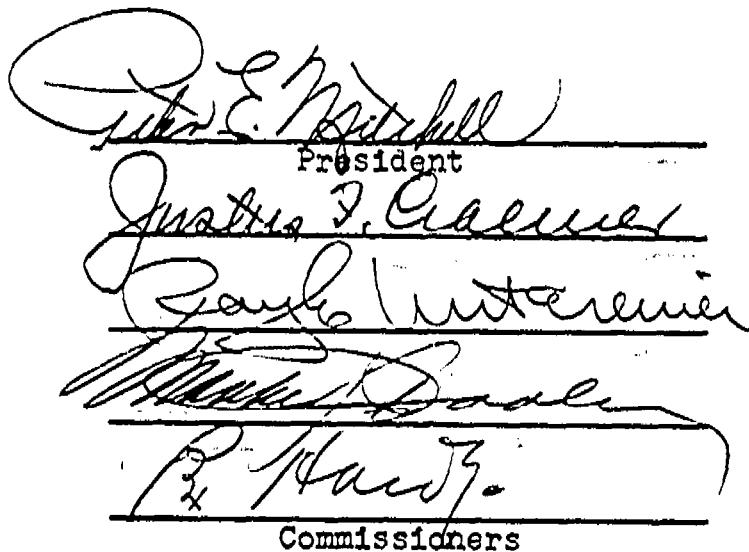 Peter E. Mitchell
President
Justus F. Craemer
Ray E. Untereiner
Rex Hardy
Commissioners